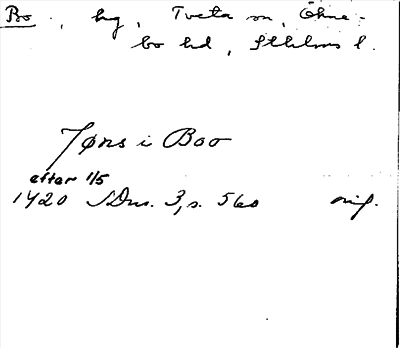 Bo., hg, Tveta sn, Ökne-
bo hd, Sthlms l.
Jøns i Boo
efter 1/5
1420 SDns. 3, s. 560 orig.